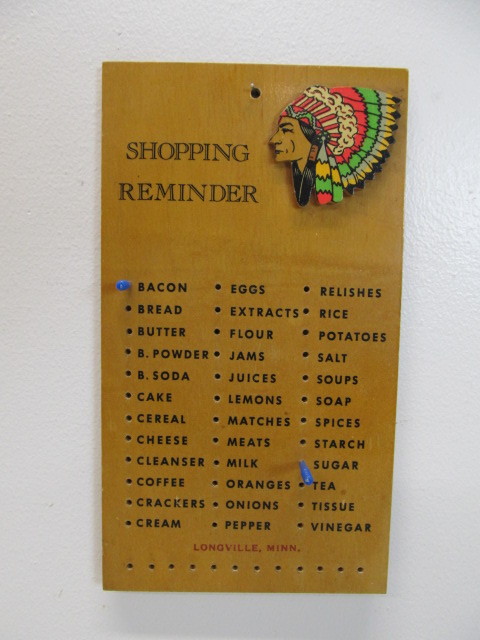 SHOPPING
REMINDER
BACON
BREAD
BUTTER
B. POWDER
B. SODA
CAKE
CEREAL
CHEESE
CLEANSER
COFFEE
CRACKERS
CREAM
EGGS
EXTRACTS
FLOUR
JAMS
JUICES
LEMONS
MATCHES
MEATS
MILK
ORANGES
ONIONS
PEPPER
RELISHES
RICE
POTATOES
SALT
SOUPS
SOAP
SPICES
STARCH
SUGAR
TEA
TISSUE
VINEGAR
LONGVILLE, MINN.